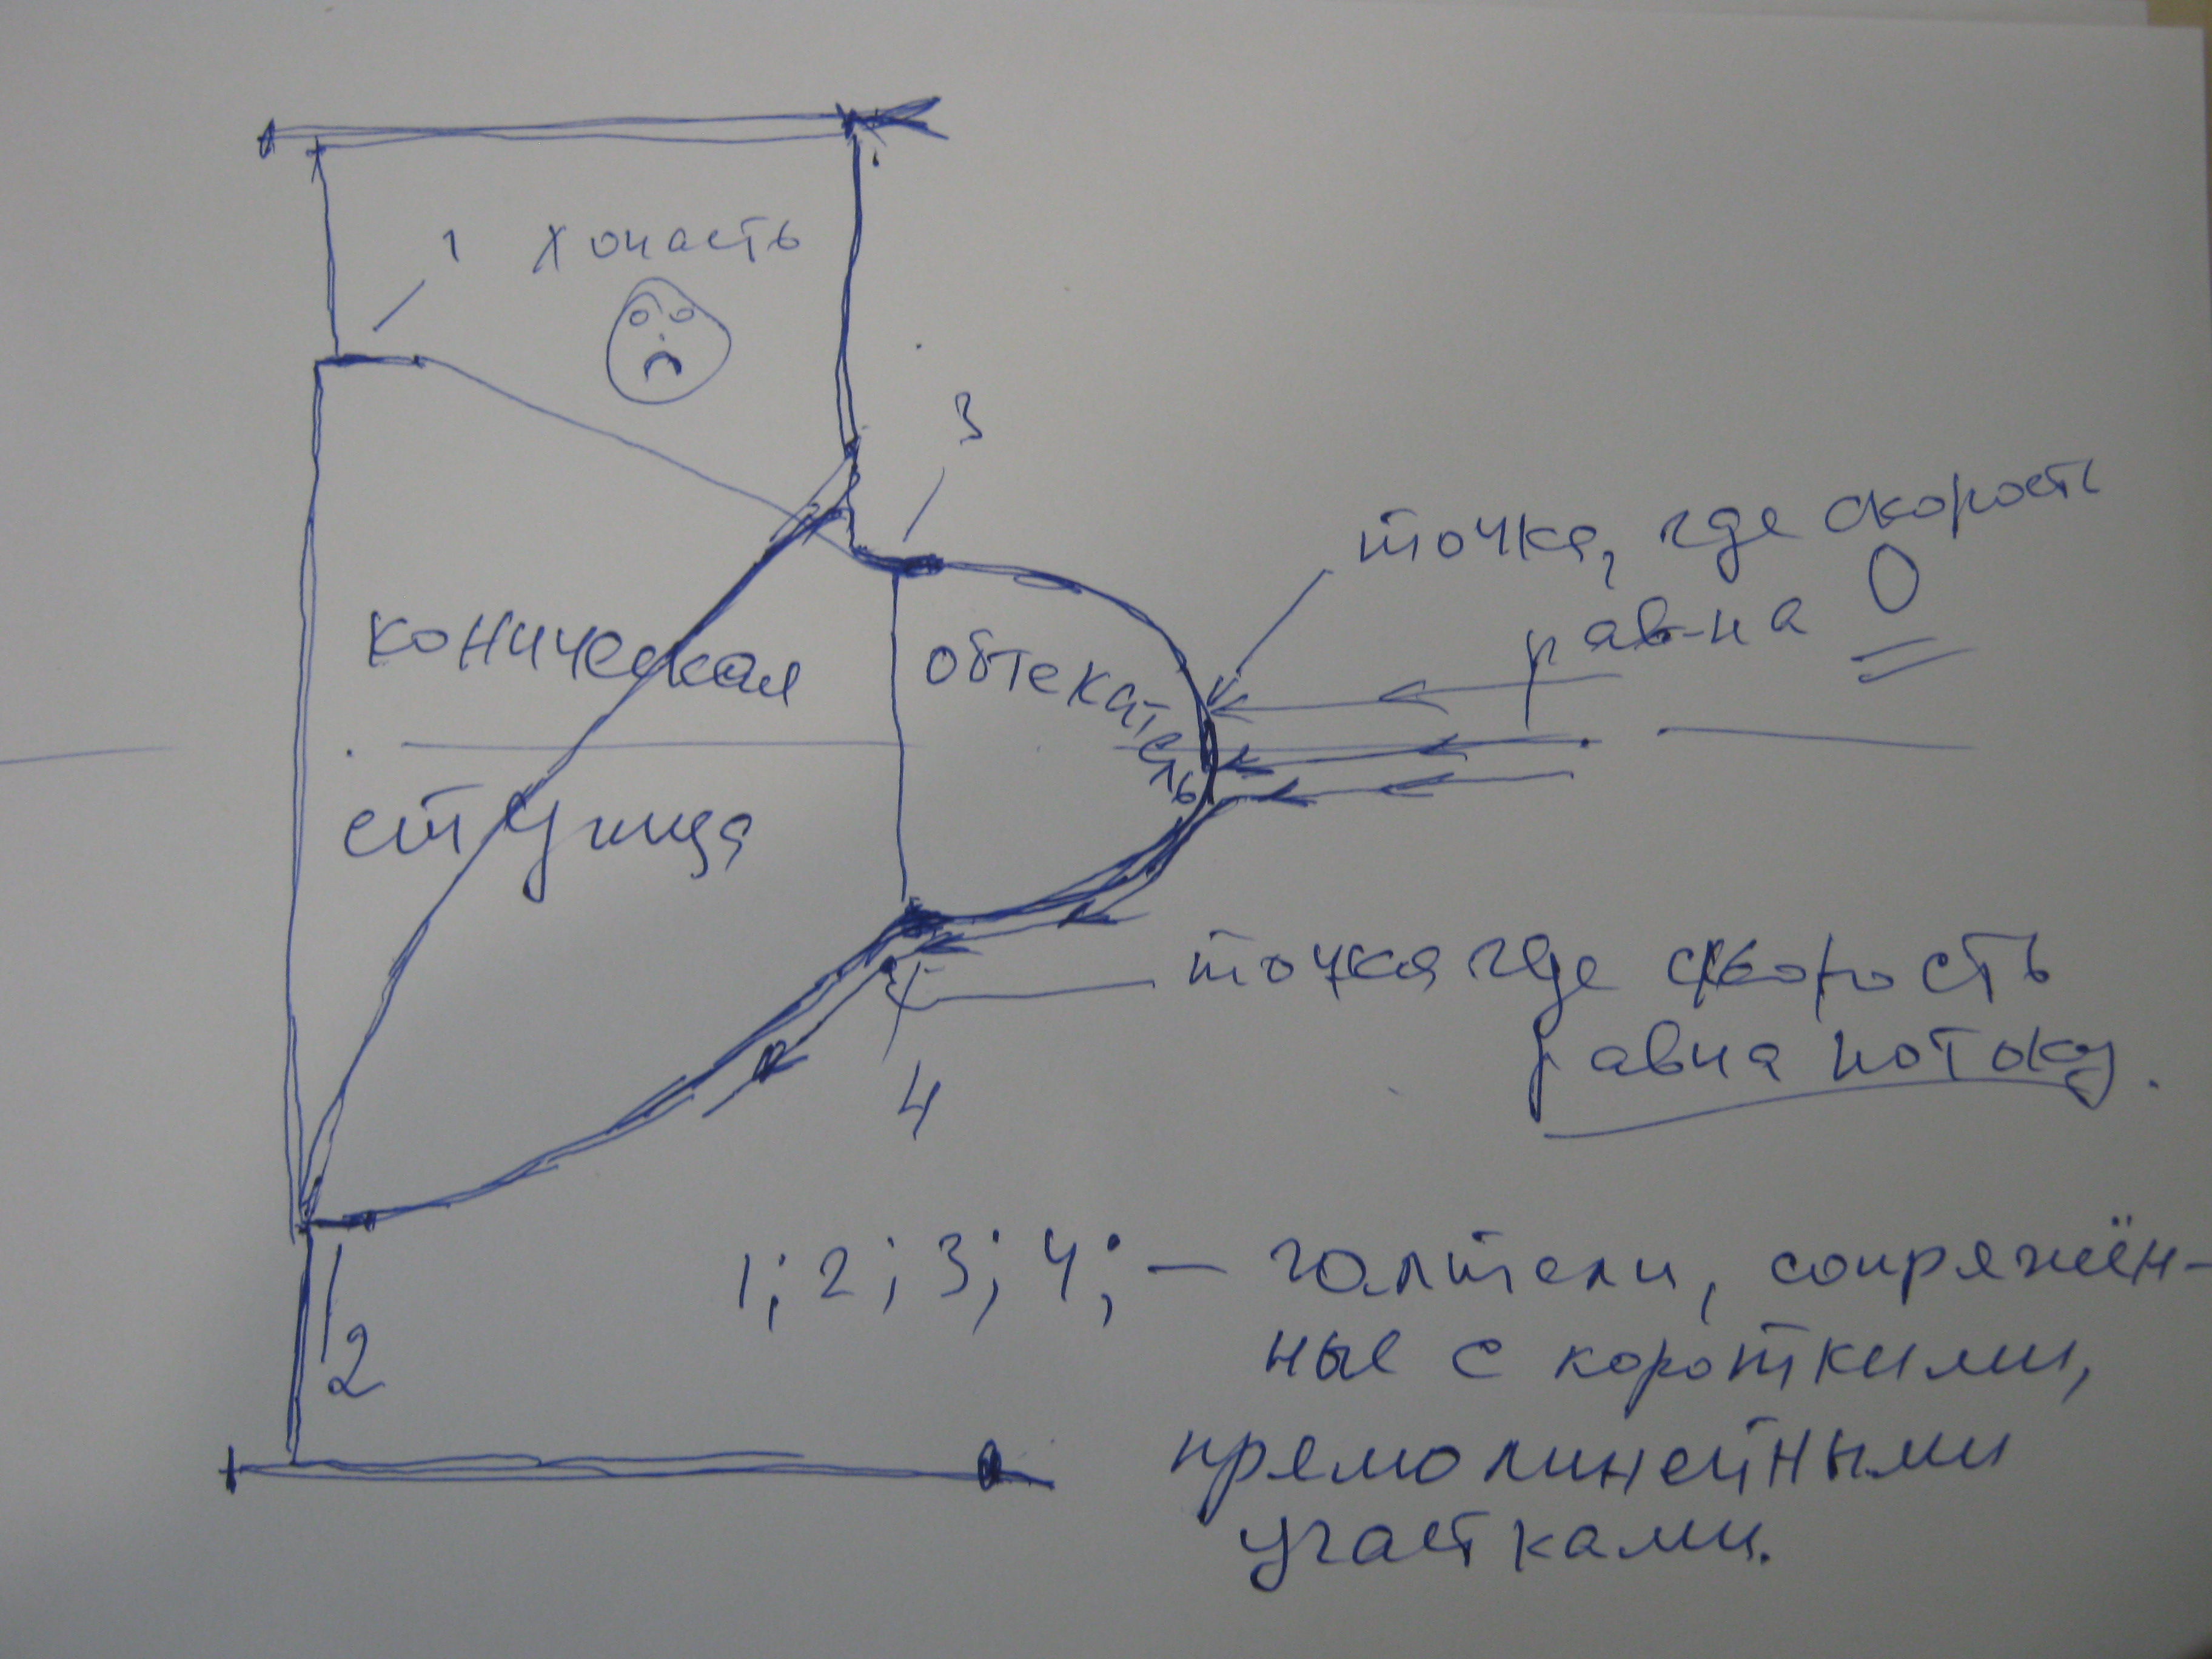 1 лопасть
3
точка, где скорость
равна 0
коническая
обтекатель
ступица
точка где скорость
равна потоку.
4
1; 2; 3; 4; — галтели, сопряжён-
ные с короткими,
2
прямолинейными
участками.